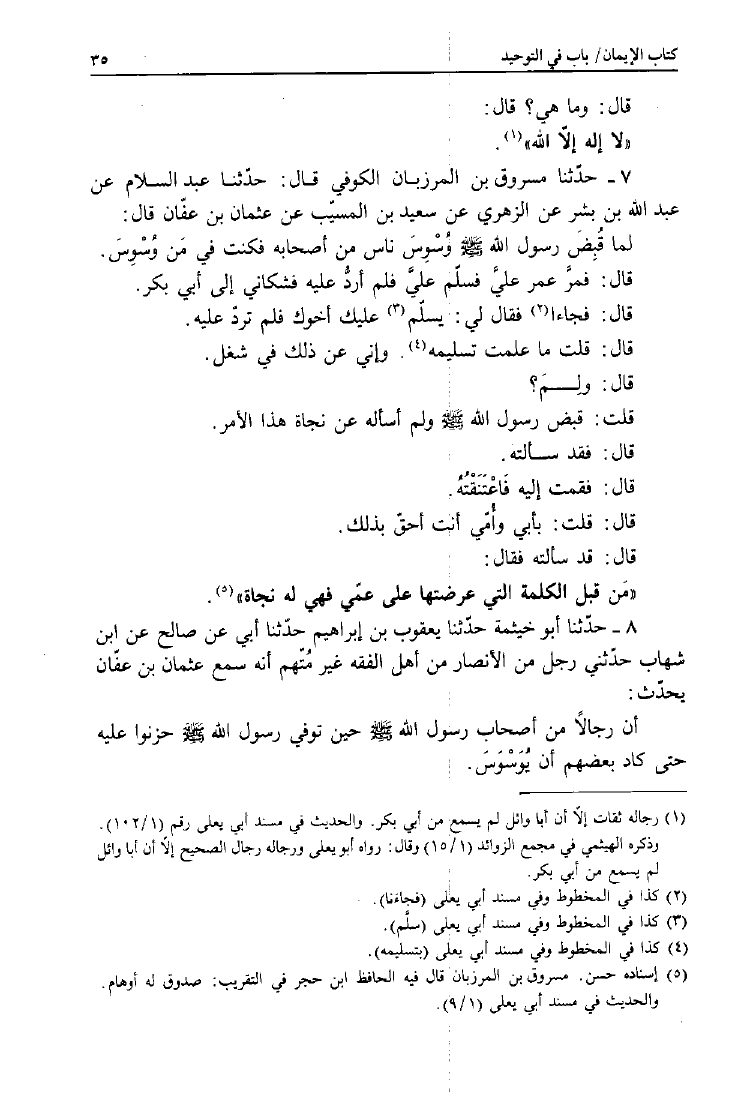 كتاب الإيمان/ باب في التوحيد ٣٥
قال: وما هي؟ قال:
«لا إله إلّا الله»(١).
٧ ـ حدّثنا مسروق بن المرزبان الكوفي قال: حدّثنا عبد السلام عن
عبد الله بن بشر عن الزهري عن سعيد بن المسيّب عن عثمان بن عفّان قال:
لما قُبِضَ رسول الله ﷺ وُسْوِسَ ناس من أصحابه فكنت في مَن وُسْوِسَ.
قال: فمرَّ عمر عليَّ فسلّم عليَّ فلم أردُّ عليه فشكاني إلى أبي بكر.
قال: فجاءا(٢) فقال لي: يسلّم(٣) عليك أخوك فلم تردّ عليه.
قال: قلت ما علمت تسليمه(٤). وإني عن ذلك في شغل.
قال: ولِـمَ؟
قلت: قبض رسول الله ﷺ ولم أسأله عن نجاة هذا الأمر.
قال: فقد سألته.
قال: فقمت إليه فَاعْتَنَقْتُهُ.
قال: قلت: بأبي وأُمّي أنت أحقّ بذلك.
قال: قد سألته فقال:
«مَن قبل الكلمة التي عرضتها على عمّي فهي له نجاة»(٥).
٨ ـ حدّثنا أبو خيثمة حدّثنا يعقوب بن إبراهيم حدّثنا أبي عن صالح عن ابن
شهاب حدّثني رجل من الأنصار من أهل الفقه غير مُتّهم أنه سمع عثمان بن عفّان
يحدّث:
أن رجالاً من أصحاب رسول الله ﷺ حين توفي رسول الله ﷺ حزنوا عليه
حتى كاد بعضهم أن يُوَسْوَسَ.
(١) رجاله ثقات إلّا أن أبا وائل لم يسمع من أبي بكر. والحديث في مسند أبي يعلى رقم (١٠٢/١).
وذكره الهيثمي في مجمع الزوائد (١٥/١) وقال: رواه أبو يعلى ورجاله رجال الصحيح إلّا أن أبا وائل
لم يسمع من أبي بكر.
(٢) كذا في المخطوط وفي مسند أبي يعلى (فجاءَنا).
(٣) كذا في المخطوط وفي مسند أبي يعلى (سلَّم).
(٤) كذا في المخطوط وفي مسند أبي يعلى (بتسليمه).
(٥) إسناده حسن. مسروق بن المرزبان قال فيه الحافظ ابن حجر في التقريب: صدوق له أوهام.
والحديث في مسند أبي يعلى (٩/١).